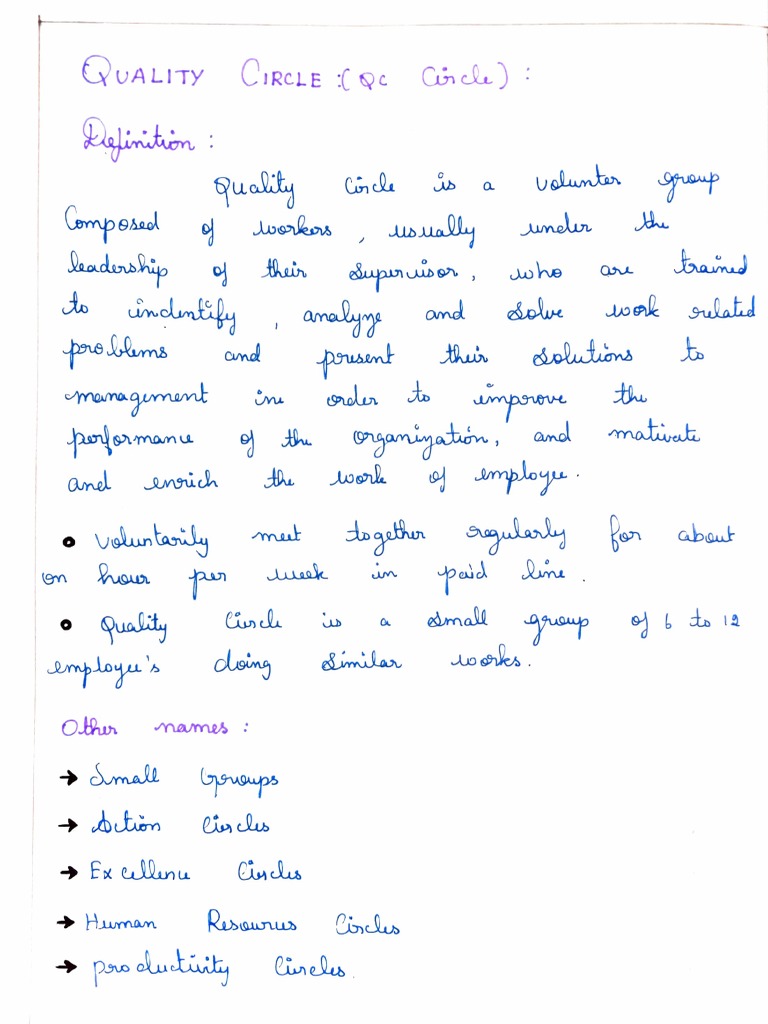 QUALITY CIRCLE :( QC Circle) :
Definition :
Quality Circle is a volunter group
Composed of workers , usually under the
leadership of their supervisor , who are trained
to indentify , analyze and solve work related
problems and present their solutions to
management in order to improve the
performance of the organization, and mativate
and enrich the work of employee .
• Voluntarily meet together regularly for about
on hour per week in paid line .
• Quality Circle is a small group of 6 to 12
employee's doing similar works .
Other names :
→ Small Groups
→ Action Circles
→ Excellence Circles
→ Human Resources Circles
→ productivity Circles .